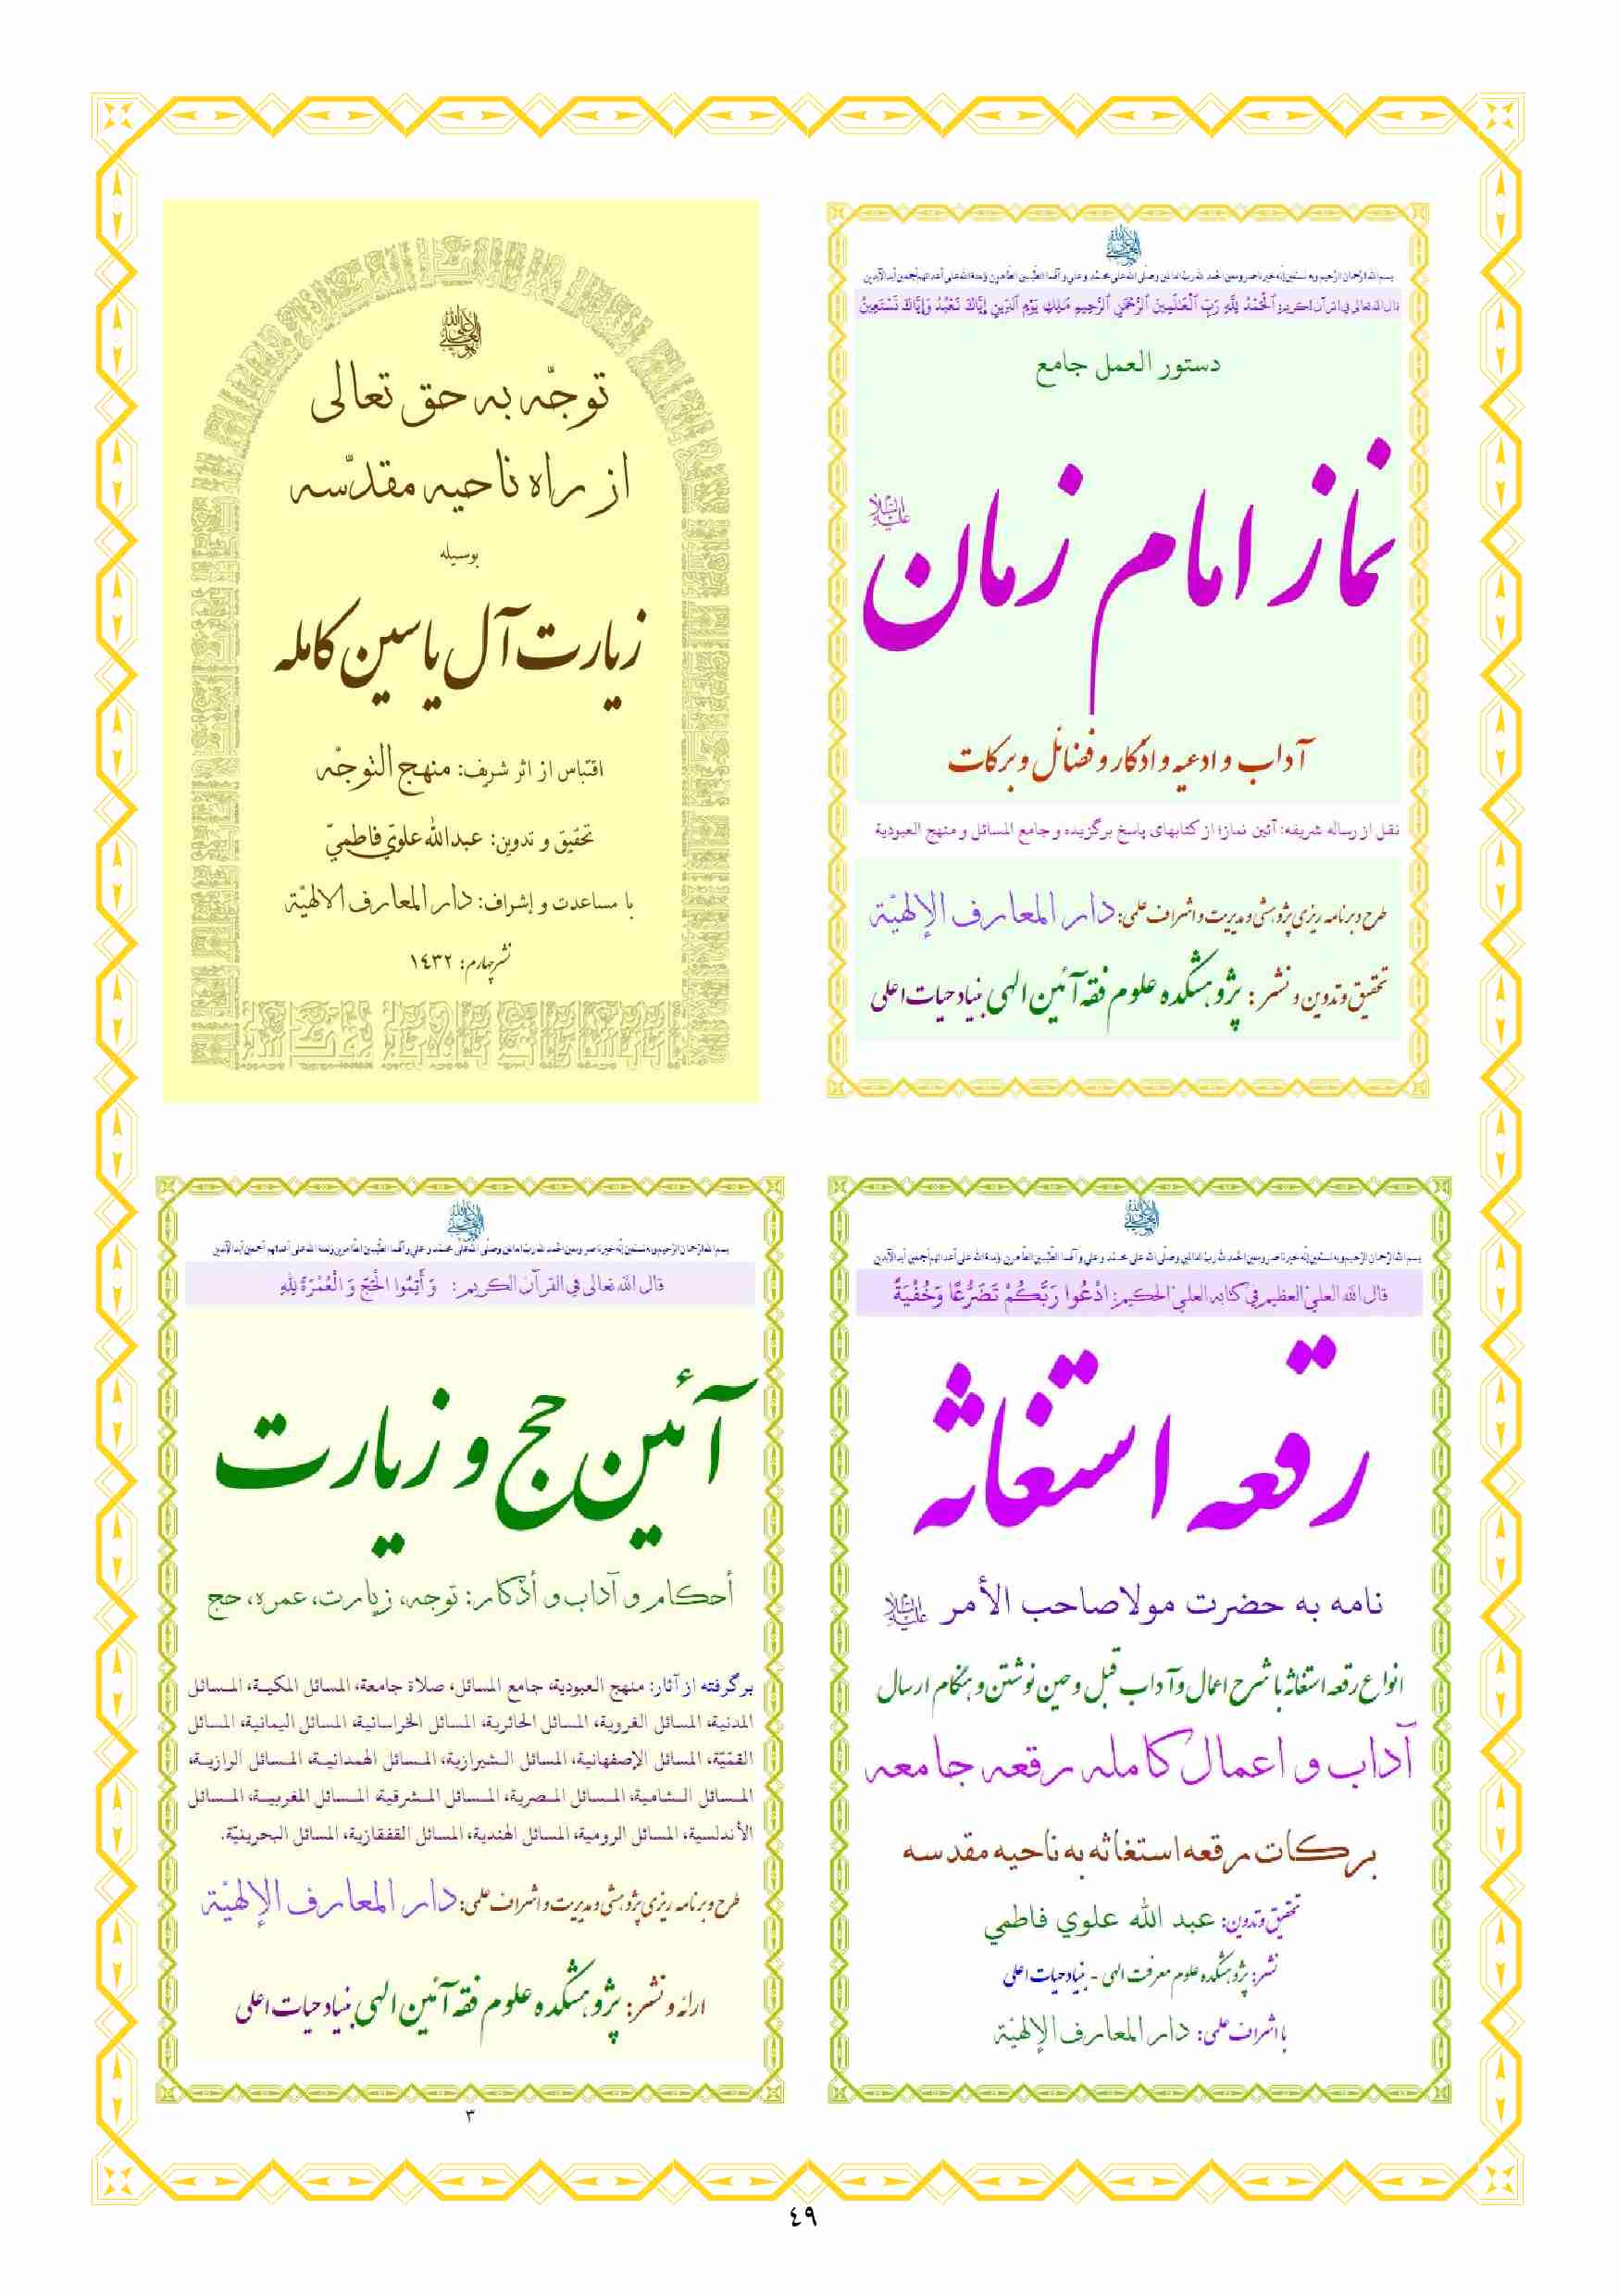 بسم الله الرّحمان الرّحيم وبه نستعين إنّه خير ناصر ومعين الحمد لله ربّ العالمين وصلّى الله على محمّد وعلي وآلهما الطّيّبين الطّاهرين ولعنة الله على أعدائهم أجمعين أبد الآبدين
قال الله تعالى في القرآن الكريم: ٱلْحَمْدُ لِلَّهِ رَبِّ ٱلْعَـٰلَمِينَ ٱلرَّحْمَـٰنِ ٱلرَّحِيمِ مَـٰلِكِ يَوْمِ ٱلدِّينِ إِيَّاكَ نَعْبُدُ وَإِيَّاكَ نَسْتَعِينُ
دستور العمل جامع
نماز امام زمان علیه السلام
آداب و ادعیه و اذکار و فضائل و برکات
نقل از رساله شریفه: آئین نماز؛ از کتابهای پاسخ برگزیده و جامع المسائل و منهج العبودیة
طرح و برنامه ریزی پژوهشی و مدیریت و اشراف علمی: دار المعارف الإلهیّة
تحقیق و تدوین و نشر: پژوهشکده علوم فقه آئین الهی بنیاد حیات اعلی
توجّه به حق تعالی
از راه ناحیه مقدّسه
بوسیله
زیارت آل یاسین کامله
اقتباس از اثر شریف: منهج التوجّه
تحقیق و تدوین: عبدالله علويّ فاطميّ
با مساعدت و إشراف: دار المعارف الالهیّة
نشر چهارم: ١٤٣٢
بسم الله الرّحمان الرّحيم وبه نستعين إنّه خير ناصر ومعين الحمد لله ربّ العالمين وصلّى الله على محمّد وعلي وآلهما الطّيّبين الطّاهرين ولعنة الله على أعدائهم أجمعين أبد الآبدين
قال الله العليّ العظيم في كتابه العليّ الحكيم: ادْعُوا رَبَّكُمْ تَضَرُّعًا وَخُفْيَةً
رقعه استغاثه
نامه به حضرت مولا صاحب الأمر علیه السلام
انواع رقعه استغاثه با شرح اعمال و آداب قبل و حین نوشتن و هنگام ارسال
آداب و اعمال کامله رقعه جامعه
برکات رقعه استغاثه به ناحیه مقدسه
تحقیق و تدوین: عبد الله علوي فاطمي
نشر: پژوهشکده علوم معرفت الهی - بنیاد حیات اعلی
با اشراف علمی: دار المعارف الإلهیّة
بسم الله الرّحمان الرّحيم وبه نستعين إنّه خير ناصر ومعين الحمد لله ربّ العالمين وصلّى الله على محمّد وعلي وآلهما الطّيّبين الطّاهرين ولعنة الله على أعدائهم أجمعين أبد الآبدين
قال الله تعالى في القرآن الكريم: وَ أَتِمُّوا الْحَجَّ وَ الْعُمْرَةَ لِلهِ
آئین حج و زیارت
أحکام و آداب و أذکار: توجه، زیارت، عمره، حج
برگرفته از آثار: منهج العبودیة، جامع المسائل، صلاة جامعة، المسائل المکیـة، المـسائل
المدنیة، المسائل الغرویة، المسائل الحائریة، المسائل الخراسانیة، المسائل الیمانیة، المسائل
القمّیّة، المسائل الإصفهانیة، المسائل الـشیرازیة، المـسائل الهمدانیـة، المـسائل الرازیـة،
المـسائل الـشامیة، المـسائل المـصریة، المـسائل المـشرقیة، المـسائل المغربیـة، المـسائل
الأندلسیة، المسائل الرومیة، المسائل الهندیة، المسائل القفقازیة، المسائل البحرینیّة.
طرح و برنامه ریزی پژوهشی و مدیریت و اشراف علمی: دار المعارف الإلهیّة
ارائه و نشر: پژوهشکده علوم فقه آئین الهی بنیاد حیات اعلی
٣
٤٩